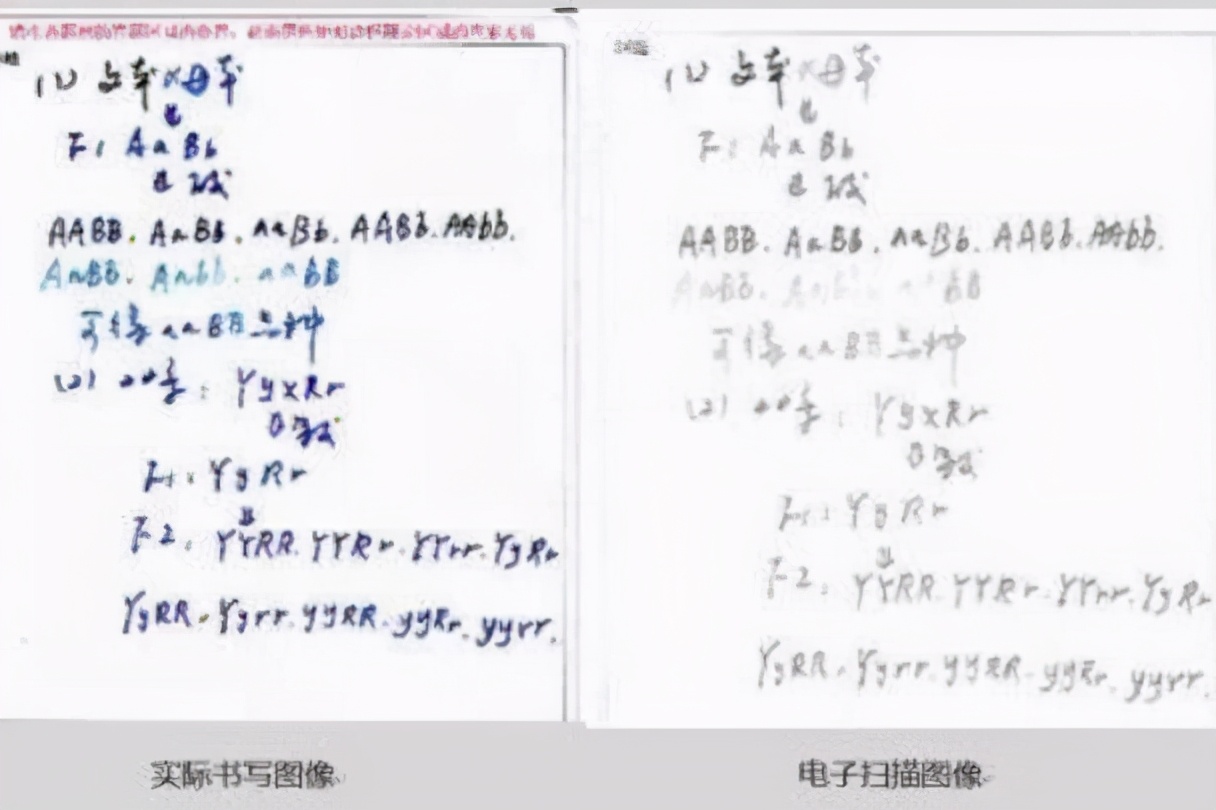 (1) 父本×母本
↓
F1 AaBb
AABB. AaBb. aaBb. AABb. AAbb.
AaBB. Aabb. aaBB
可得aaBB品种
(2) : Yy×Rr
F1: YyRr
↓
F2: YYRR. YYRr. YYrr. YyRr
YyRR. Yyrr. yyRR. yyRr. yyrr.
实际书写图像
(1) 父本×母本
↓
F1 AaBb
AABB. AaBb. aaBb. AABb. AAbb.
AaBB. Aabb. aaBB
可得aaBB品种
(2) : Yy×Rr
F1: YyRr
↓
F2: YYRR. YYRr. YYrr. YyRr
YyRR. Yyrr. yyRR. yyRr. yyrr.
电子扫描图像